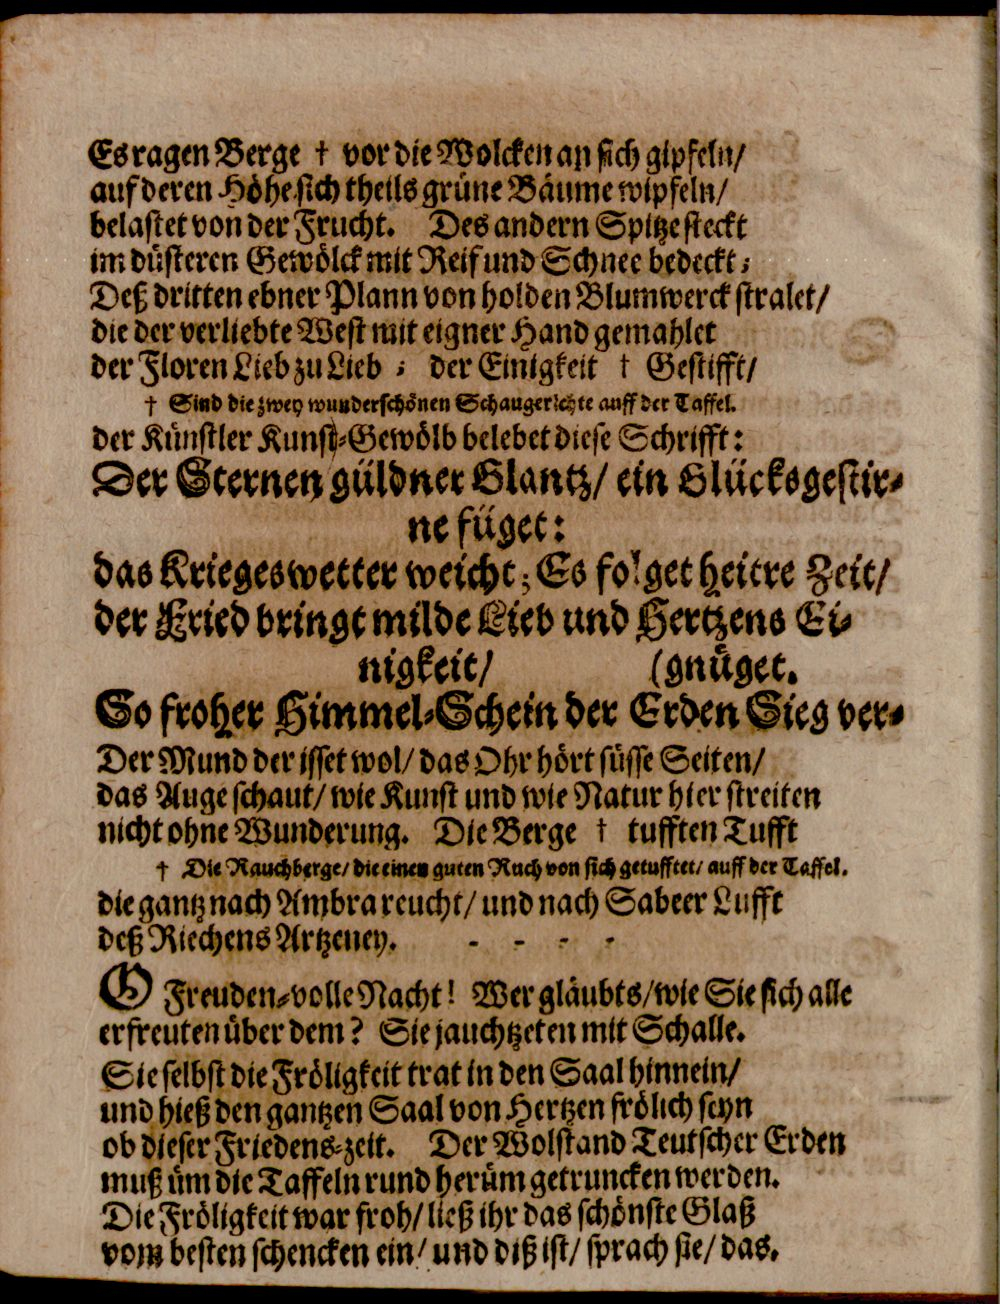 Es ragen Berge † vor die Wolcken an sich gipfeln/
auf deren Höhe sich theils grüne Bäume wipfeln/
belastet von der Frucht. Des andern Spitze steckt
im düsteren Gewölck mit Reif und Schnee bedeckt;
Deß dritten ebner Plann von holden Blumwerck stralet/
die der verliebte West mit eigner Hand gemahlet
der Floren Lieb zu Lieb ; der Einigkeit † Gestifft/
† Sind die zwey wunderschönen Schaugerichte auff der Taffel.
der Künstler Kunst-Gewölb belebet diese Schrifft:
Der Sternen güldner Glantz/ ein Glücksgestir-
ne füget:
das Krieges wetter weicht; Es folget heitre Zeit/
der Fried bringt milde Lieb und Hertzens Ei-
nigkeit/ (gnüget.
So froher Himmel-Schein der Erden Sieg ver-
Der Mund der isset wol/ das Ohr hört süsse Seiten/
das Auge schaut/ wie Kunst und wie Natur hier streiten
nicht ohne Wunderung. Die Berge † tufften Tufft
† Die Rauchberge/ die einen guten Ruch von sich getufftet/ auff der Taffel.
die gantz nach Ambra reucht/ und nach Sabeer Lufft
deß Riechens Artzeney. - - - -
O Freuden-volle Nacht! Wer gläubts/ wie Sie sich alle
erfreuten über dem? Sie jauchtzeten mit Schalle.
Sie selbst die Fröligkeit trat in den Saal hinnein/
und hieß den gantzen Saal von Hertzen frölich seyn
ob dieser Friedens-zeit. Der Wolstand Teutscher Erden
muß üm die Taffeln rund herüm getruncken werden.
Die Fröligkeit war froh/ ließ ihr das schönste Glaß
vom besten schencken ein/ und diß ist/ sprach sie/ das.